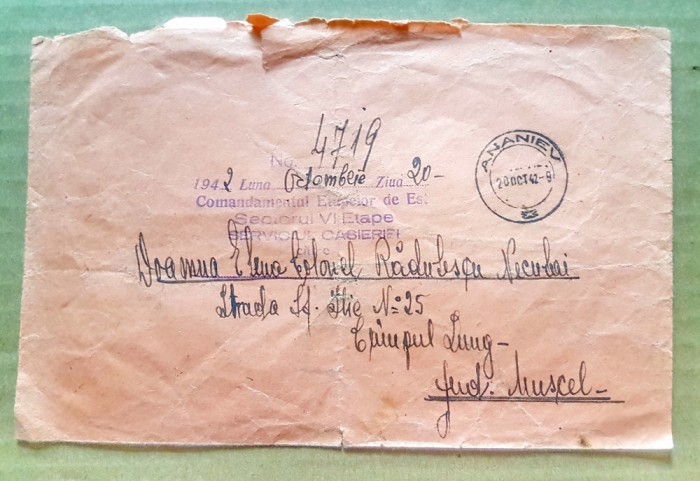 No. 4719
1942 Luna Octombrie Ziua 20-
Comandamentul Etapelor de Est
Sectorul VI Etape
SERVICIUL CASIERIEI
ANANIEV
20 OCT 42-9
Doamna Elena Colonel Rădulescu Neculai
Strada Sf. Ilie No 25
Câmpul Lung-
Jud. Muscel-